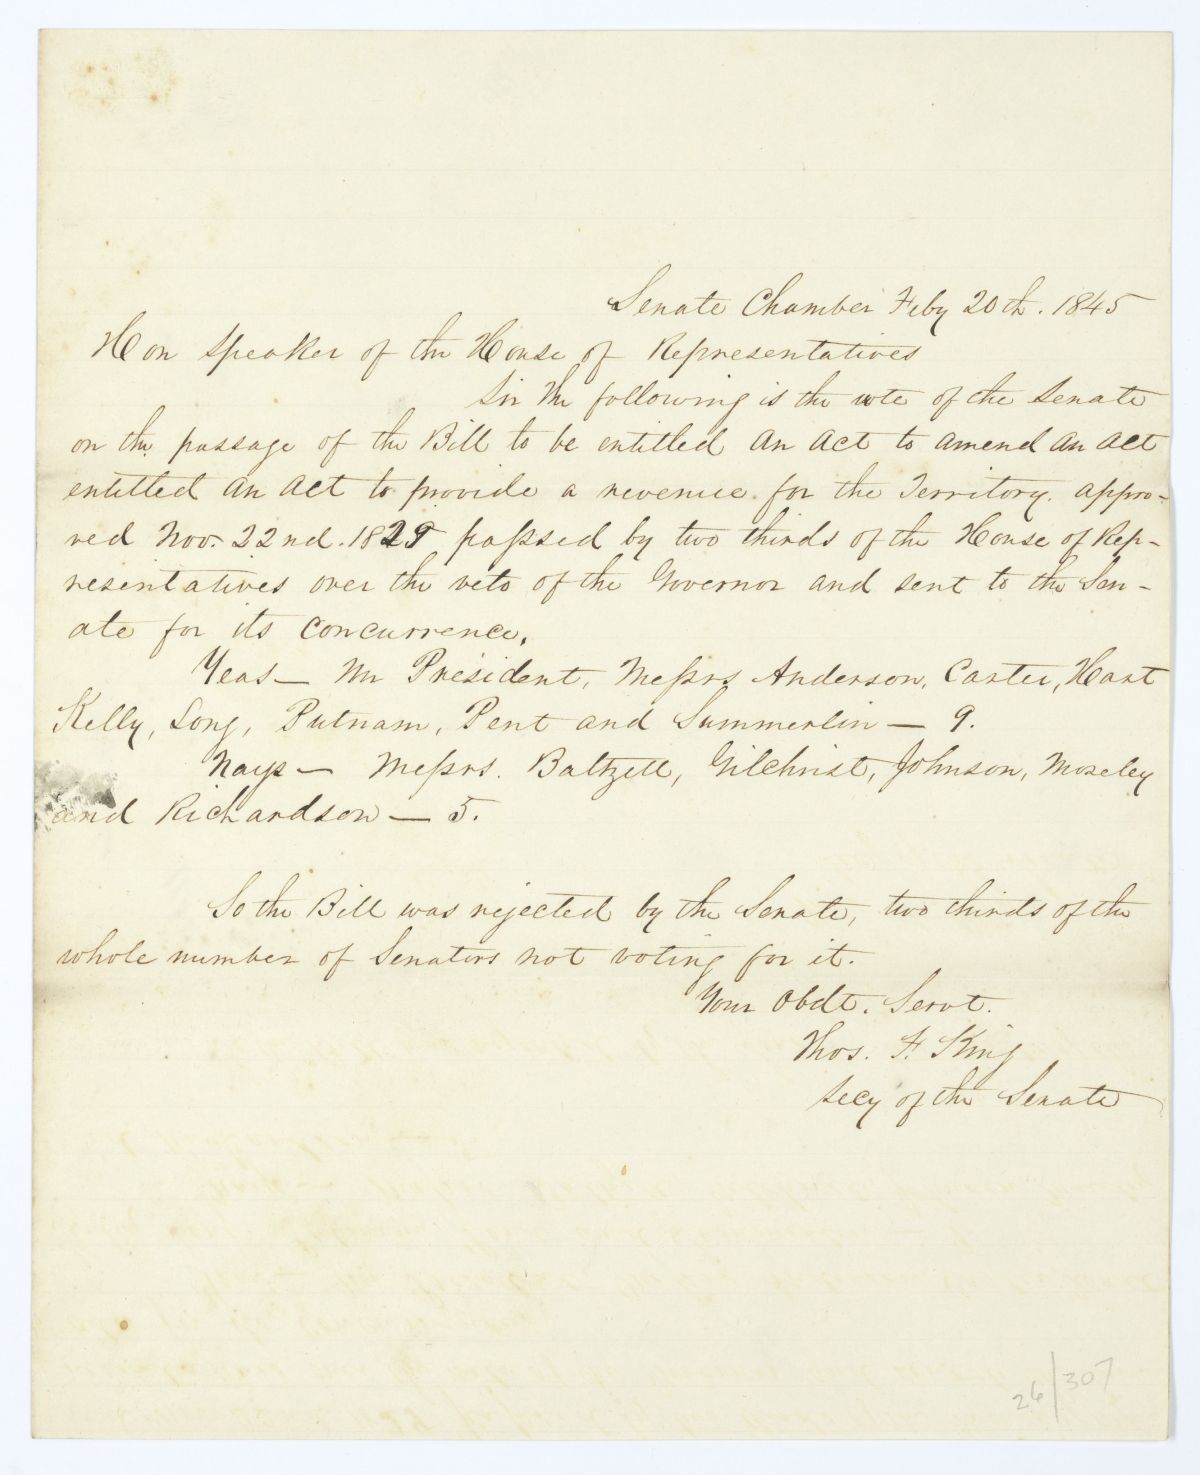 Senate Chamber Feby 20th. 1845
Hon Speaker of the House of Representatives
Sir The following is the vote of the Senate
on the passage of the Bill to be entitled An Act to amend an act
entitled an act to provide a revenue for the Territory. appro-
ved Nov. 22nd. 1829 passed by two thirds of the House of Rep-
resentatives over the veto of the Governor and sent to the Sen-
ate for its concurrence.
Yeas — Mr President, Messrs Anderson, Carter, Hart
Kelly, Long, Putnam, Pent and Summerlin — 9.
Nays — Messrs. Baltzell, Gilchrist, Johnson, Moseley
and Richardson — 5.
So the Bill was rejected by the Senate, two thirds of the
whole number of Senators not voting for it.
Your Obdt. Servt.
Thos. F. King
Secy of the Senate
26/307